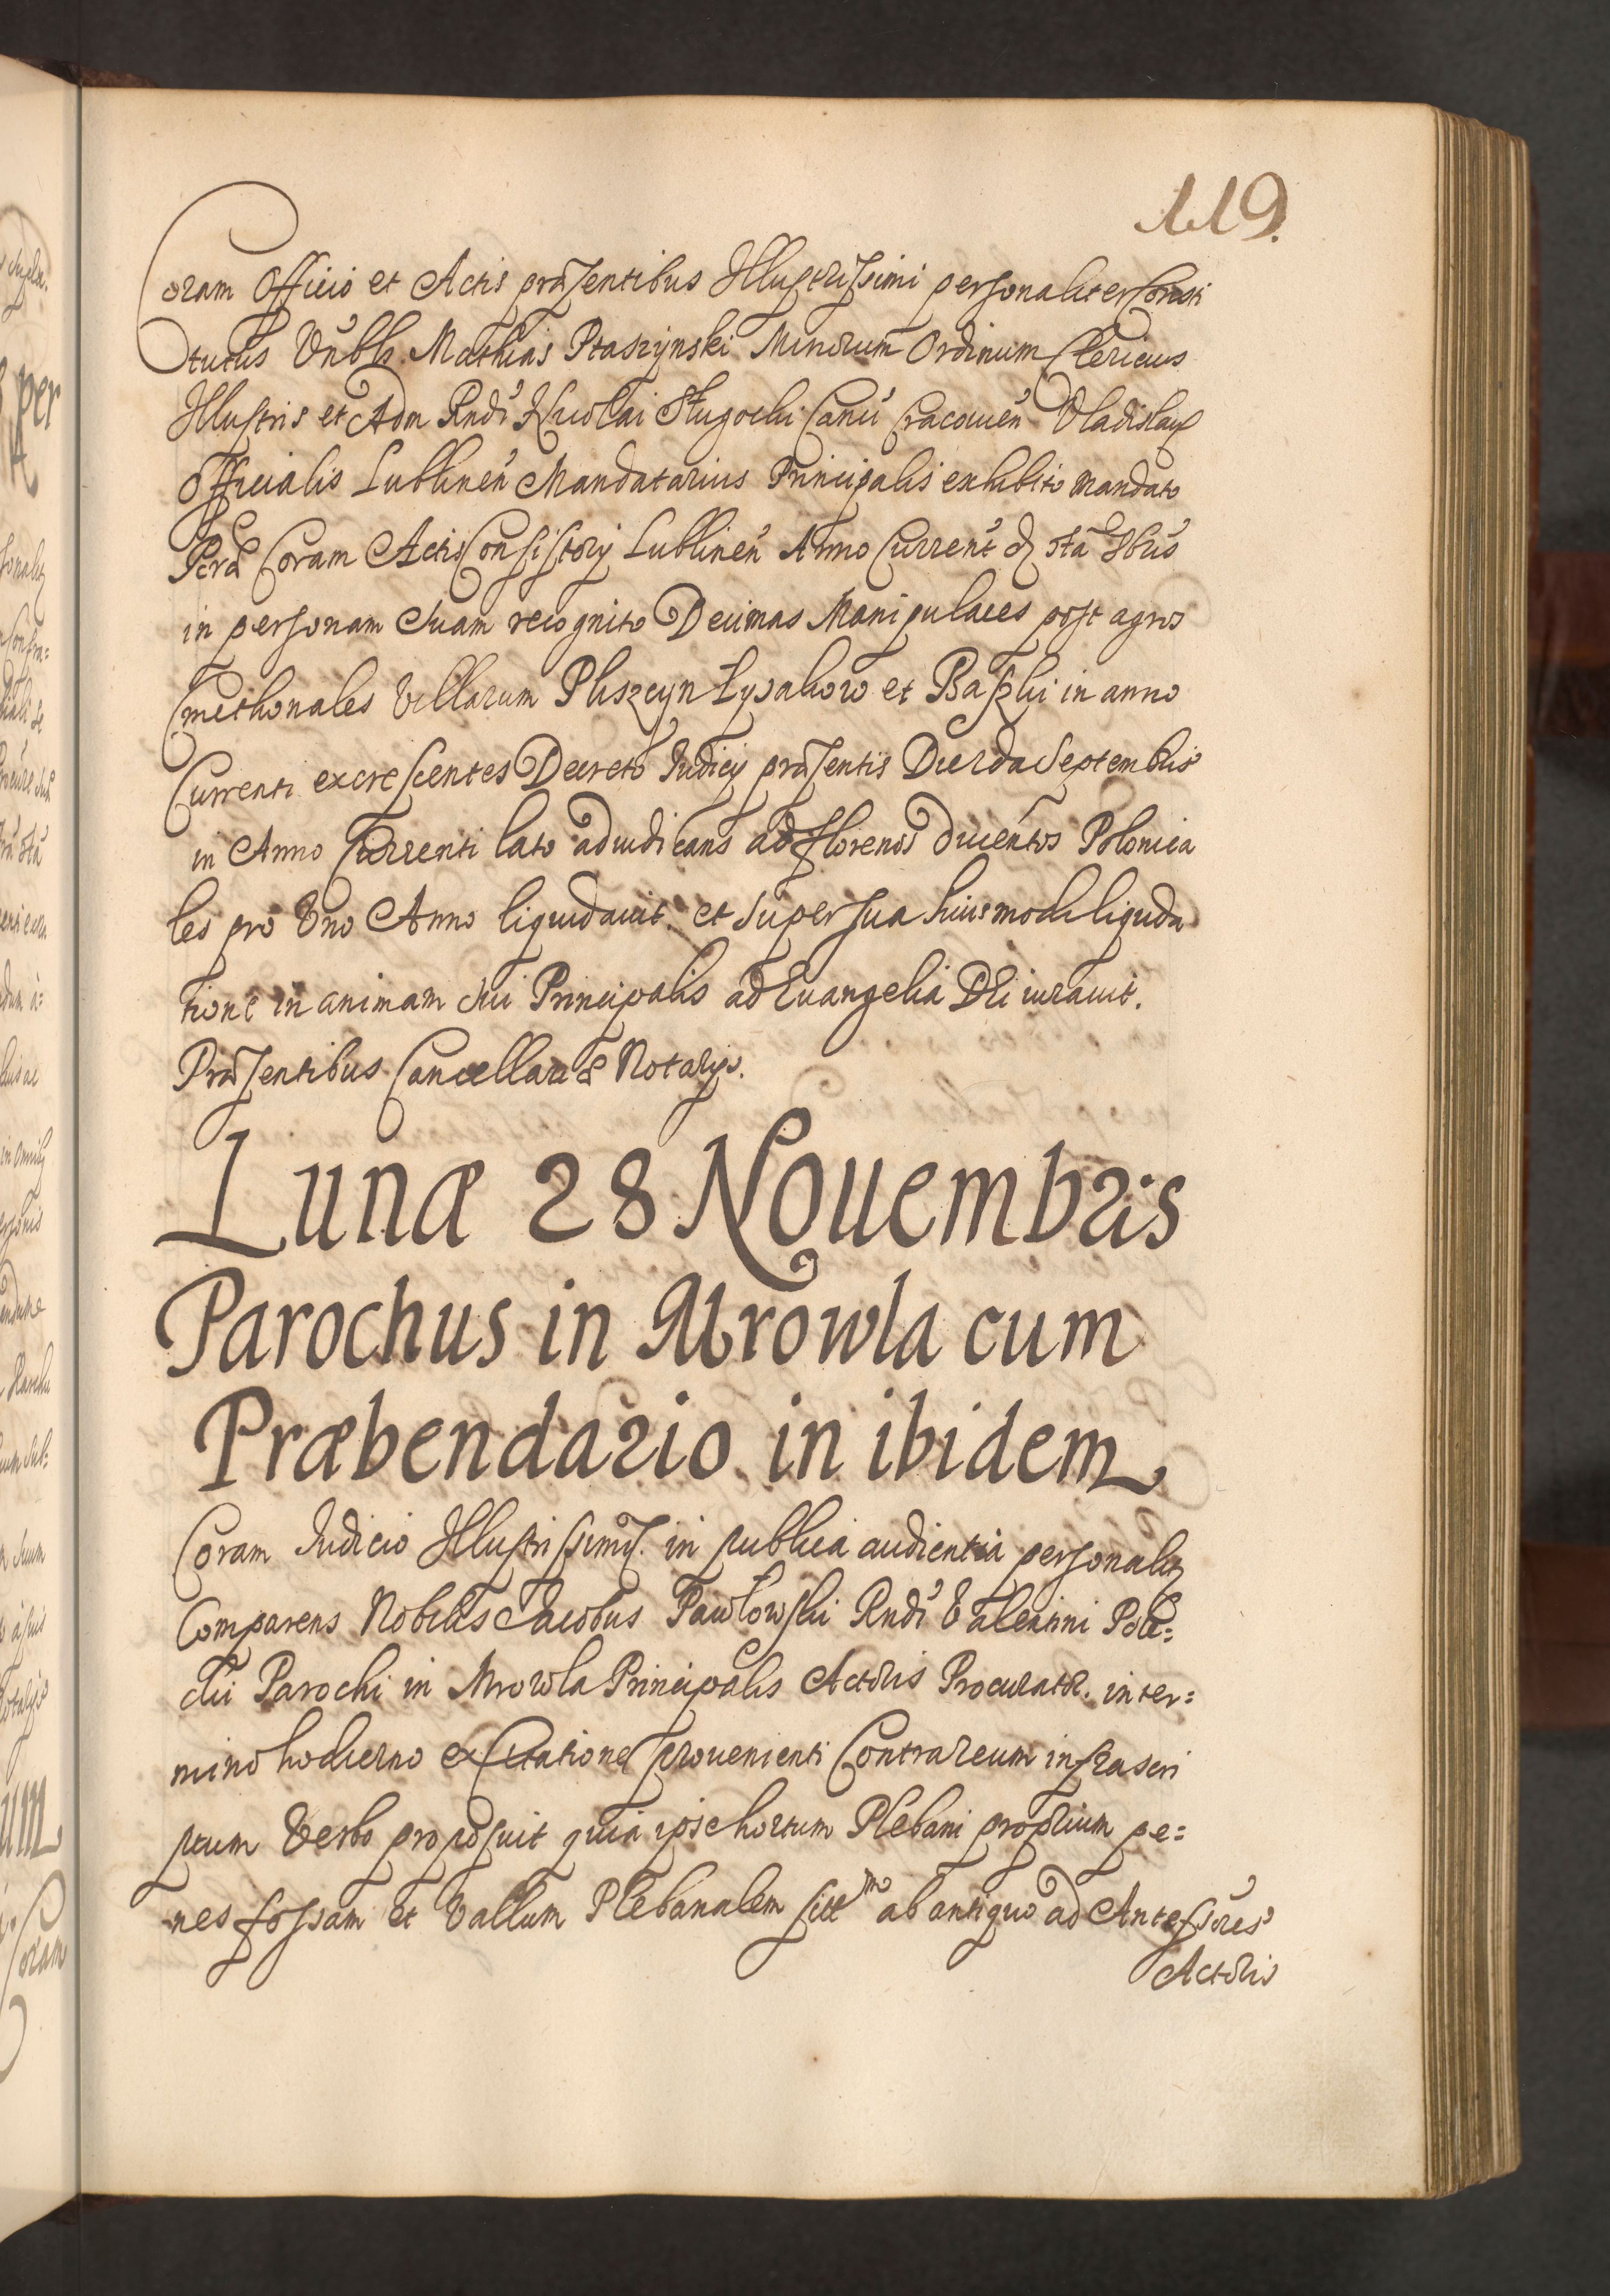 119.
Coram Officio et Actis præsentibus Illustrissimi personaliter Consti
tutus Vnbls Mathias Ptaszynski Minorum Ordinum Clericus
Illustris et Adm Rndi Nicolai Długochi Canci Cracouen Vladislaỹ
Officialis Lublinen Mandatarius Principalis exhibito mandato
Coram Actis Consistorij Lublinen Anno Current
in personam Suam recognito Decimas Manipulares post agros
Cmethonales Villarum Pliszczyn Łysakow et in anno
Currenti excrescentes Decreto Iudicij præsentis Septembris
in Anno Currenti lato adiudicans ad florenos ducentos Polonica
les pro Vno Anno liquidauit et super sua huiusmodi liquida
tione in animam sui Principalis ad Euangelia DEi iurauit.
Præsentibus Cancellariæ Notarijs.
Lunæ 28 Nouembris
Parochus in Mrowla cum
Præbendario in ibidem
Coram Iudicio Illustrissimi in publica audientia personalit
Comparens Nobilis Iacobus Pawłowski Rndi Valentini
Parochi in Mrowla Principalis Actoris Procurator. in ter=
mino hodierno ex Citatione prouenienti Contra reum infrascri
ptum Verbo proposuit quia ipse hortum Plebani proprium pe=
nes fossam et Vallum Plebanalem ab antiquo ad Antessores
Actoris